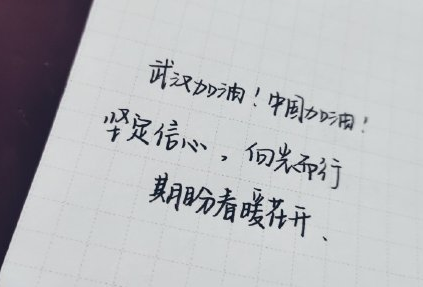 武汉加油！中国加油！
坚定信心，向光而行
期盼看暖花开、